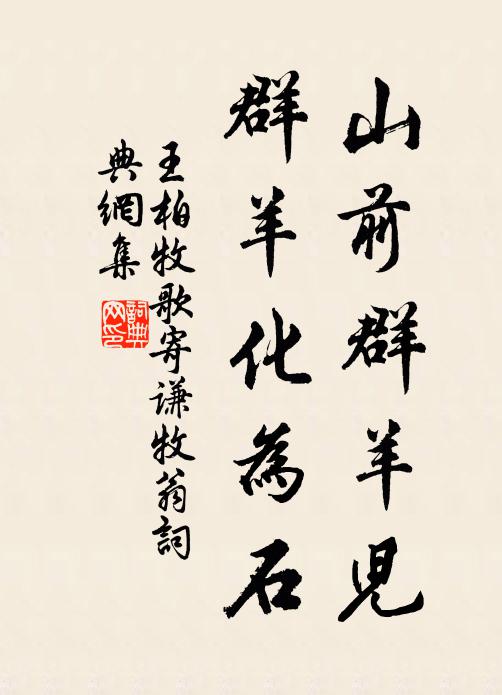 山前群羊児
群羊化為石
王柏牧歌寄谦牧翁詞
典網集
詞典网印